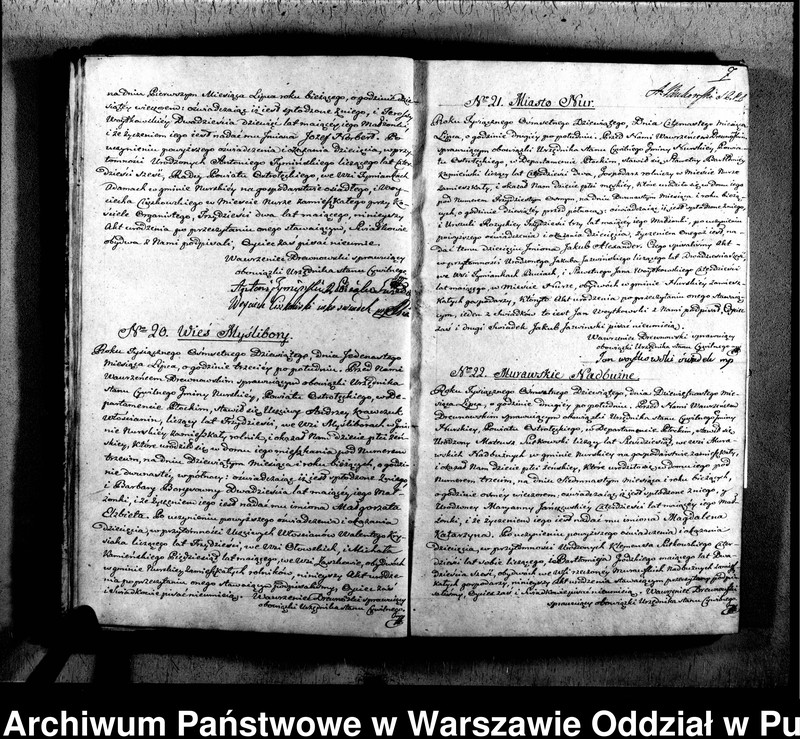 na dniu Pierwszym Miesiąca Lipca roku bieżącego, o godzinie dzie-
siątey wieczorem: oświadczaiąc iż iest spłodzone z niego, i Teressy
Woytkowskiey Dwadzieścia dziewięć lat maiącey iego Małżonki,
i że życzeniem iego iest nadać mu Jmiona Jozef Norbert. Po
uczynieniu powyższego oświadczenia i okazania dziecięcia, w przy-
tomności Urodzonych Antoniego Tymińskiego liczącego lat
dzieści sześć, Radcy Powiatu Ostrołęckiego, we Wsi Tymiankach
Adamach w gminie Nurskiey na gospodarstwie osiadłego, i Woy-
ciecha w Mieście Nurze zamieszkałego przy Ko-
ściele Organisty, Trzdzieści dwa lat maiącego, ninieyszy
Akt urodzenia po przeczytaniu onego stawaiącym, Świadkowie
obydwa z Nami podpisali, Oyciec zaś pisać nieumie.
Wawrzeniec Drewnowski sprawuiący
obowiązki Urzędnika Stanu Cywilnego
Antoni Tymiński
Woyciech
No 20. Wieś Myślibory.
Roku Tysiącznego Ośmsetnego Dziewiątego, Dnia Jedenastego
Miesiąca Lipca, o godzinie trzeciey po południu. Przed Nami
Wawrzeńcem Drewnowskim sprawuiącym obowiązki Urzędnika
Stanu Cywilnego Gminy Nurskiey, Powiatu Ostrołęckiego, w De-
partamencie Płockim, stawił się Uczciwy Andrzey Krawczuk
Włościanin, liczący lat Trzydzieści, we Wsi Myśliborach w Gmi-
nie Nurskiey zamieszkały rolnik, i okazał Nam dziecie płci żeń-
skiey, które urodziło się w domu iego mieszkania pod Numerem
trzecim, na dniu Dziewiątym Miesiąca i roku bieżących, o godzi-
nie dwunastey w północy: oświadczaiąc iż iest spłodzone z niego
i Barbary Dwadzieścia lat maiącey iego Mał-
żonki, i że życzeniem iego iest nadać mu imiona Małgorzata
Elżbieta. Po uczynieniu powyższego oświadczenia i okazania
dziecięcia, w przytomności Uczciwych Włościanów Walentego
liczącego lat Trzydzieści, we Wsi i Michała
Kamińskiego Pięćdziesiąt lat maiącego, we Wsi obydwóch
w gminie Nurskiey zamieszkałych rolników, ninieyszy Akt urodze-
nia po przeczytaniu onego stawaiącym podpisaliśmy, Oyciec zaś
i Świadkowie pisać nieumieią. Wawrzeniec Drewnowski sprawuiący
obowiązki Urzędnika Stanu Cywilnego.
7
No 21. Miasto Nur.
Roku Tysiącznego Ośmsetnego Dziewiątego, Dnia Czternastego miesiąca
Lipca, o godzinie drugiey po południu. Przed Nami Wawrzeńcem Drewnowskim
sprawuiącym obowiązki Urzędnika Stanu Cywilnego Gminy Nurskiey, Powia-
tu Ostrołęckiego, w Departamencie Płockim, stawił się Pracowity
liczący lat Czterdzieści Dwa, Gospodarz rolniczy w Mieście Nurze
zamieszkały, i okazał Nam dziecie płci męzkiey, które urodziło się w domu iego
pod Numerem Trzydziestym Osmym, na dniu Dwunastym Miesiąca i roku bieżą-
cych, o godzinie dziewiątey przed północą: oświadczaiąc iż iest spłodzone z niego,
i Urszuli Trzydzieści trzy lat maiącey iego Małżonki, po uczynieniu
ninieyszego oświadczenia i okazaniu dziecięcia, życzeniem Oyca iest, na-
dać temu dziecięciu Jmiona Jakub Alexander. Czego spisaliśmy Akt
w przytomności Urodzonego Jakuba Jawińskiego liczącego lat
we Wsi Tymiankach i Pracowitego Jana Woytkowskiego Czterdzieści
lat maiącego, w Mieście Nurze, obydwóch w gminie Nurskiey zamiesz-
kałych gospodarzy, Któryto Akt urodzenia po przeczytaniu onego stawaią-
cym, ieden z świadków to iest Jan Woytkowski z Nami podpisał, Oyciec
zaś i drugi świadek Jakub Jawinski pisać nieumieią.
Wawrzeniec Drewnowski sprawuiący
obowiązki Urzędnika Stanu Cywilnego
Jan woytkowski swiadek mp
No 22. Murawskie Nadbużne.
Roku Tysiącznego Ośmsetnego Dziewiątego, dnia Dziewiętnastego Mie-
siąca Lipca, o godzinie drugiey po południu. Przed Nami Wawrzeńcem
Drewnowskim sprawuiącym obowiązki Urzędnika Stanu Cywilnego Gminy
Nurskiey, Powiatu Ostrołęckiego, w Departamencie Płockim, stawił się
Urodzony Mateusz liczący lat we Wsi Muraw-
skich Nadbużnych w gminie Nurskiey na gospodarstwie zamieszkały,
i okazał Nam dziecie płci żeńskiey, które urodziło się w domu iego pod
Numerem trzecim, na dniu Siedmnastym miesiąca i roku bieżących,
o godzinie osmey wieczorem, oświadczaiąc iż iest spłodzone z niego, y
Urodzoney Maryanny Czterdzieści lat maiącey iego Mał-
żonki, i że życzeniem iego iest nadać mu imiona Magdalena
Katarzyna. Po uczynieniu powyższego oświadczenia i okazania
dziecięcia, w przytomności Urodzonych Klemensa Czter-
dzieści lat sobie liczącego, i Bartłomieja maiącego lat Dwa-
dzieścia sześć, obydwóch we Wsi rzeczoney Murawskich Nadbużnych zamiesz-
kałych ninieyszy Akt urodzenia stawaiącym przeczytany podpi-
saliśmy, Oyciec zaś i Świadkowie pisać nieumieią. Wawrzeniec Drewnowski
sprawuiący obowiązki Urzędnika Stanu Cywilnego
Archiwum Państwowe w Warszawie Oddział w Pu